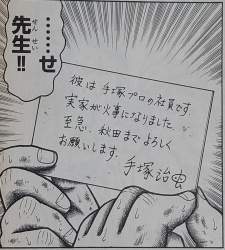 ……せ
先生!!
せんせい
彼は手塚プロの社員です
実家が火事になりました
至急、秋田までよろしく
お願いします.
手塚治虫